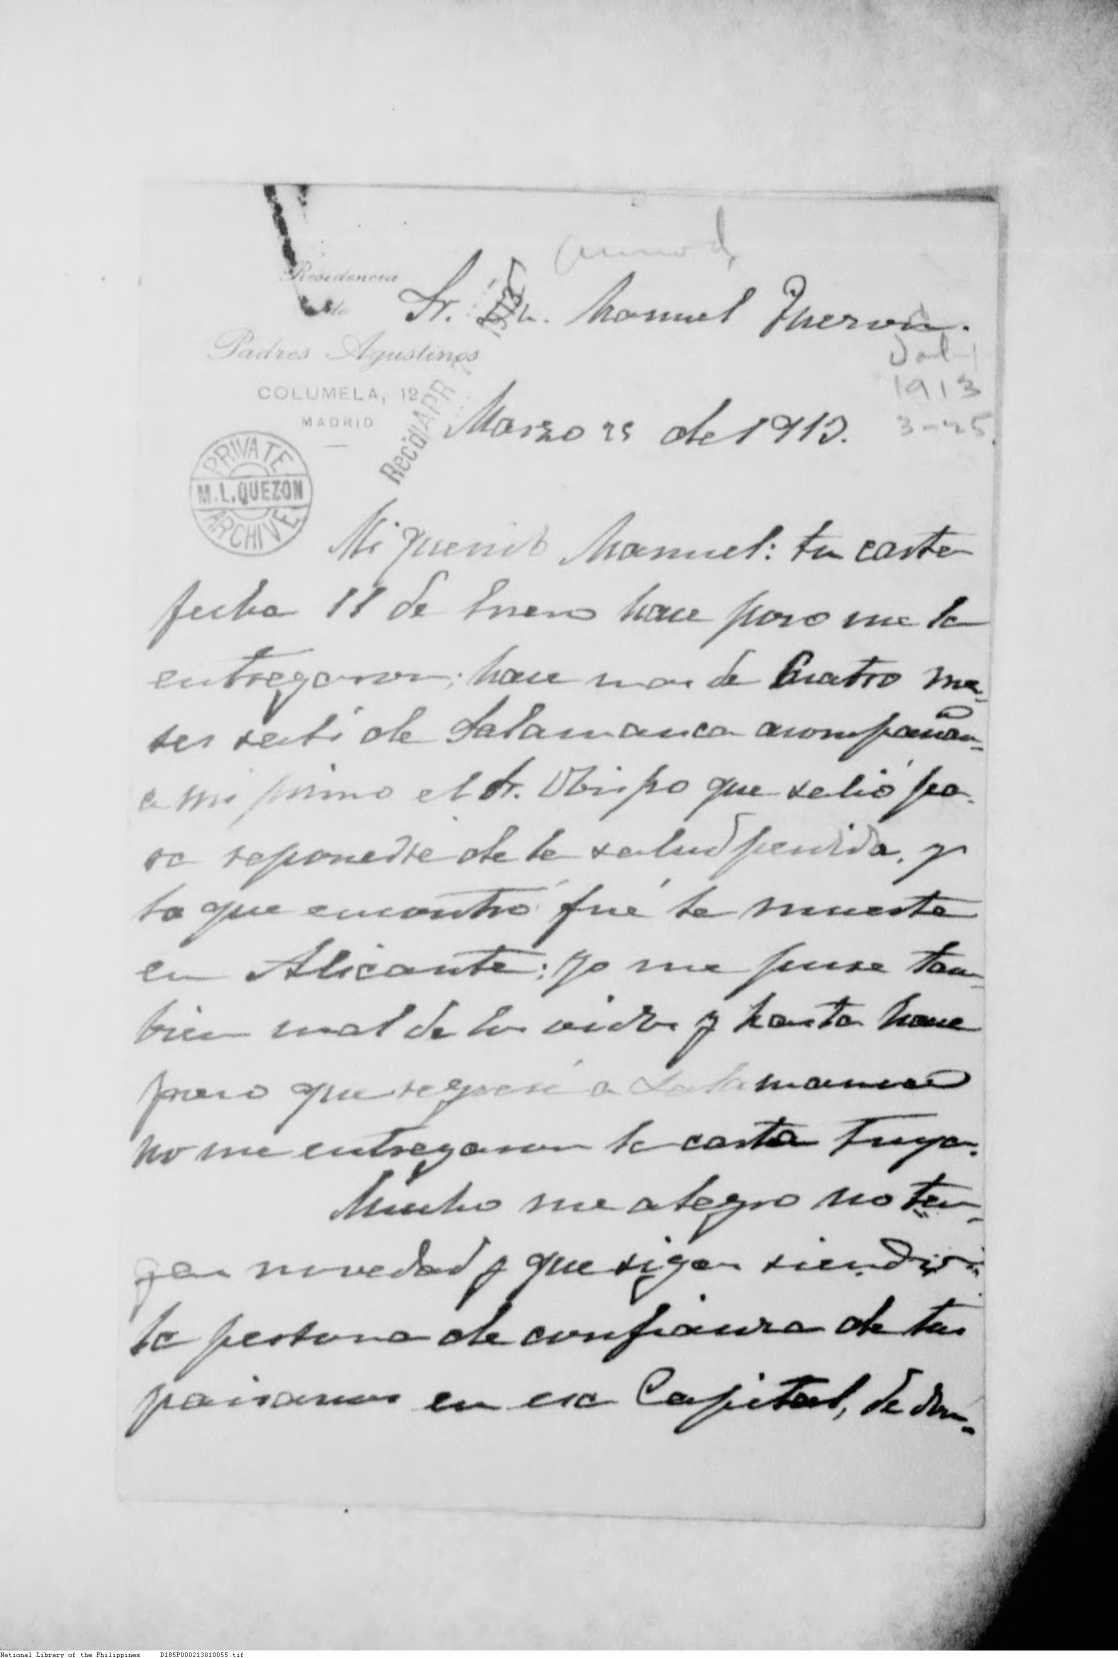 Residencia
de
Padres Agustinos
COLUMELA, 12
MADRID
PRIVATE
M.L.QUEZON
ARCHIVE
Recd APR
1913
1913
3-25
Sr. Dn. Manuel Quezon.
Marzo 25 de 1913.
Mi querido Manuel: tu carta
fecha 11 de Enero hace poco me la
entregaron; hace mas de Cuatro me-
ses salí de Salamanca acompañan-
a mi primo el Sr. Obispo que salió pa-
ra reponerse de la salud perdida, y
lo que encontró fué la muerte
en Alicante: yo me puse tam-
bien mal de los oidos y hasta hace
poco que regresé a Salamanca
no me entregaron la carta tuya.
Mucho me alegro no ten-
gan novedad y que sigan siendo
la persona de confianza de tus
paisanos en esa Capital, de don-
National Library of the Philippines D185P000213810055.tif